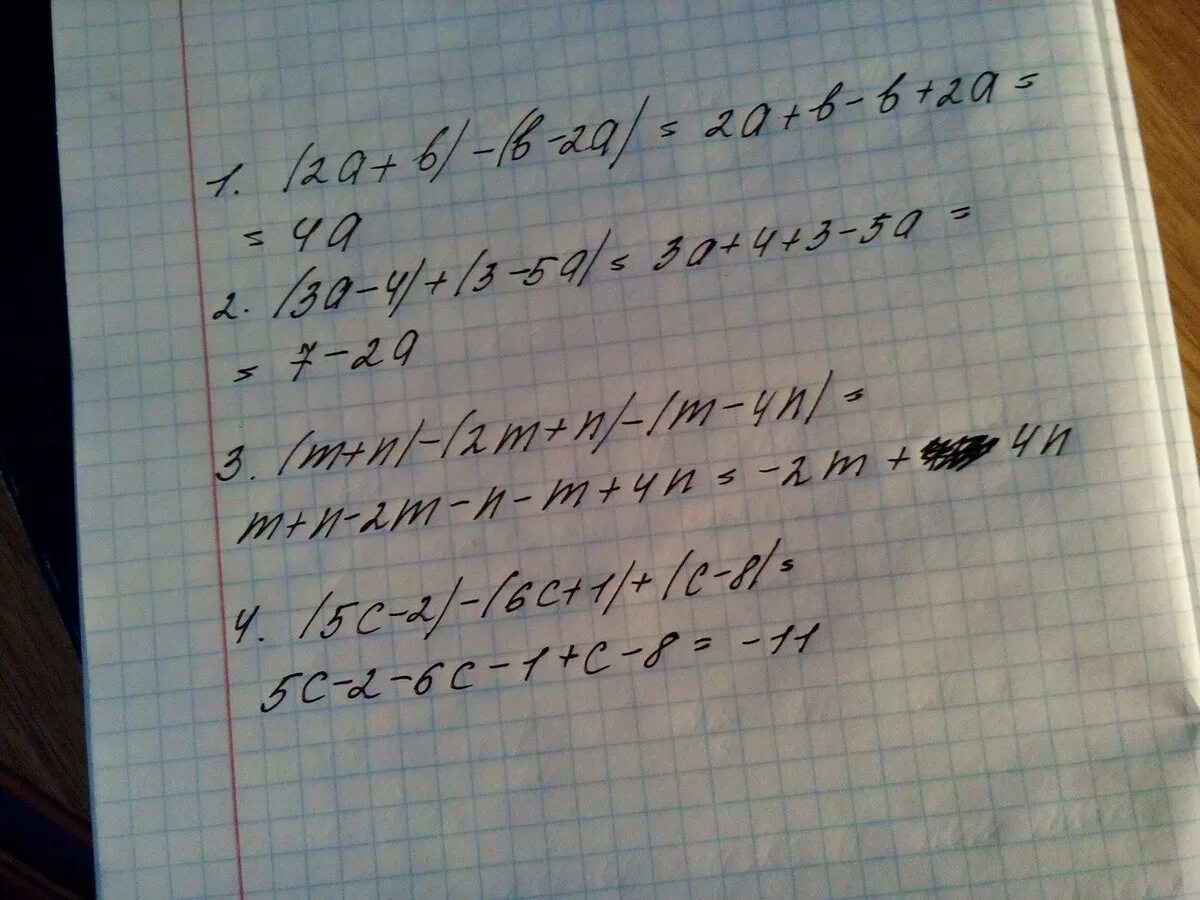 1. (2a+b)-(b-2a)=2a+b-b+2a=
=4a
2. (3a-4)+(3-5a)=3a+4+3-5a=
=7-2a
3. (m+n)-(2m+n)-(m-4n)=
m+n-2m-n-m+4n=-2m+4n
4. (5c-2)-(6c+1)+(c-8)=
5c-2-6c-1+c-8=-11